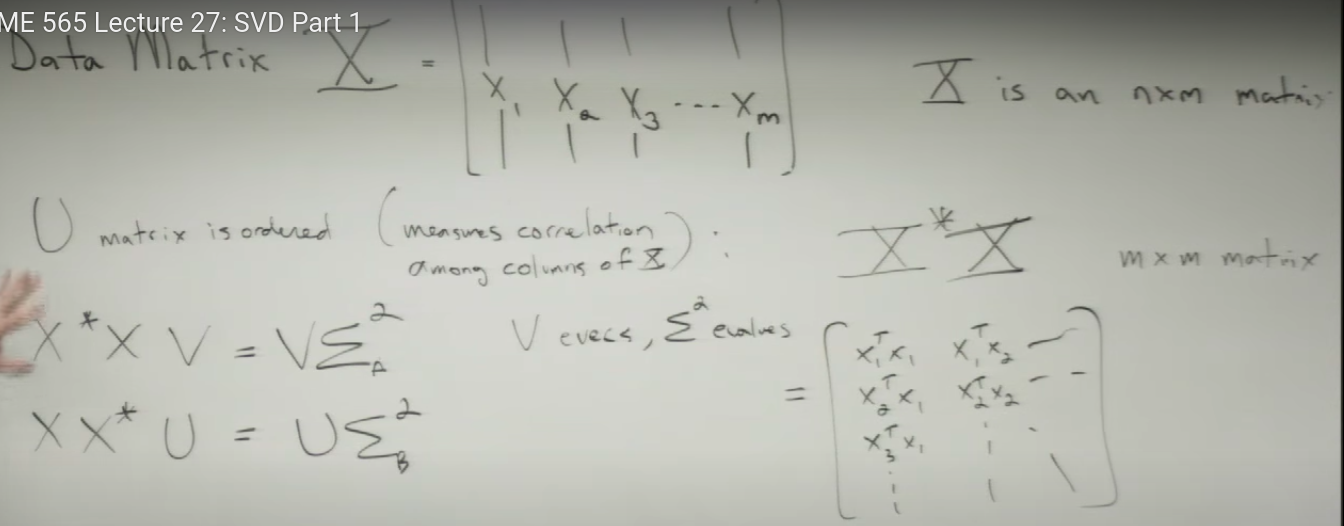 ME 565 Lecture 27: SVD Part 1
Data Matrix X = [x₁ x₂ x₃ --- xₘ]
X is an n×m matrix
U matrix is ordered (measures correlation among columns of X) :
X*X
m×m matrix
X*X V = VΣ_A²
V evecs, Σ² evalues
= [x₁ᵀx₁ x₁ᵀx₂ —
x₂ᵀx₁ x₂ᵀx₂ - -
x₃ᵀx₁ ⋮ ⋱
⋮ ]
XX* U = UΣ_B²